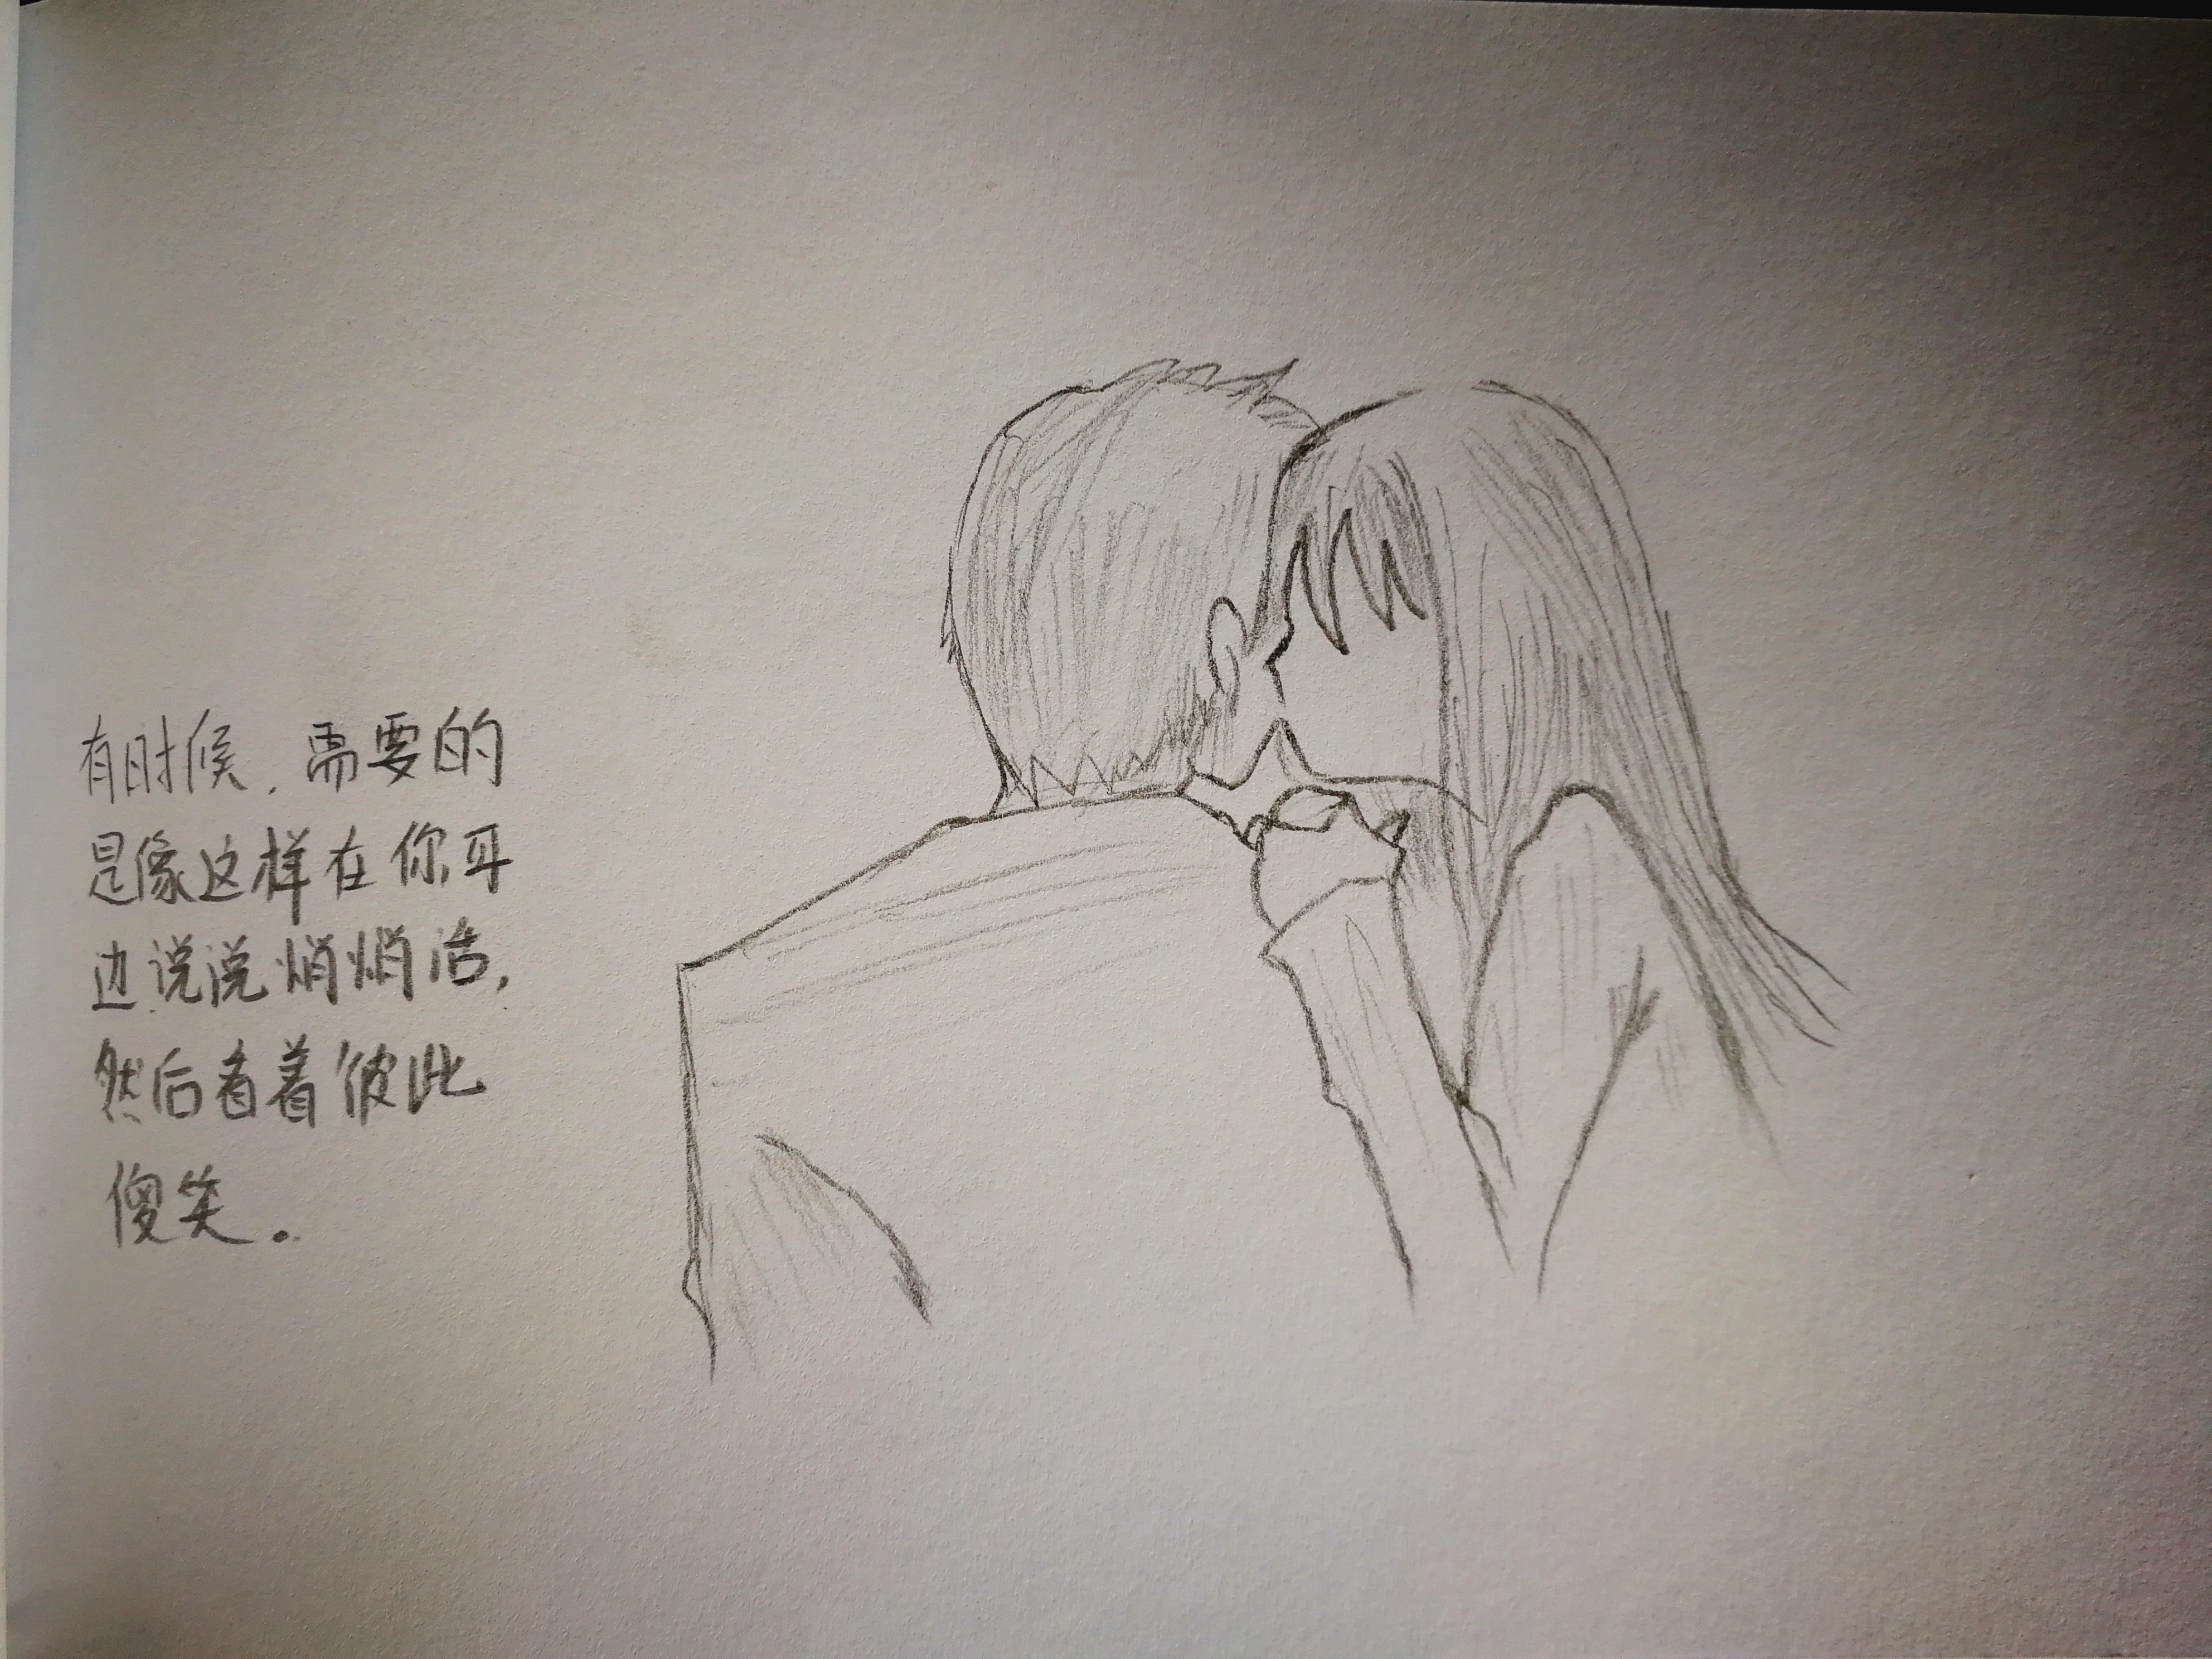 有时候,需要的
是像这样在你耳
边说说悄悄话,
然后看着彼此
傻笑。